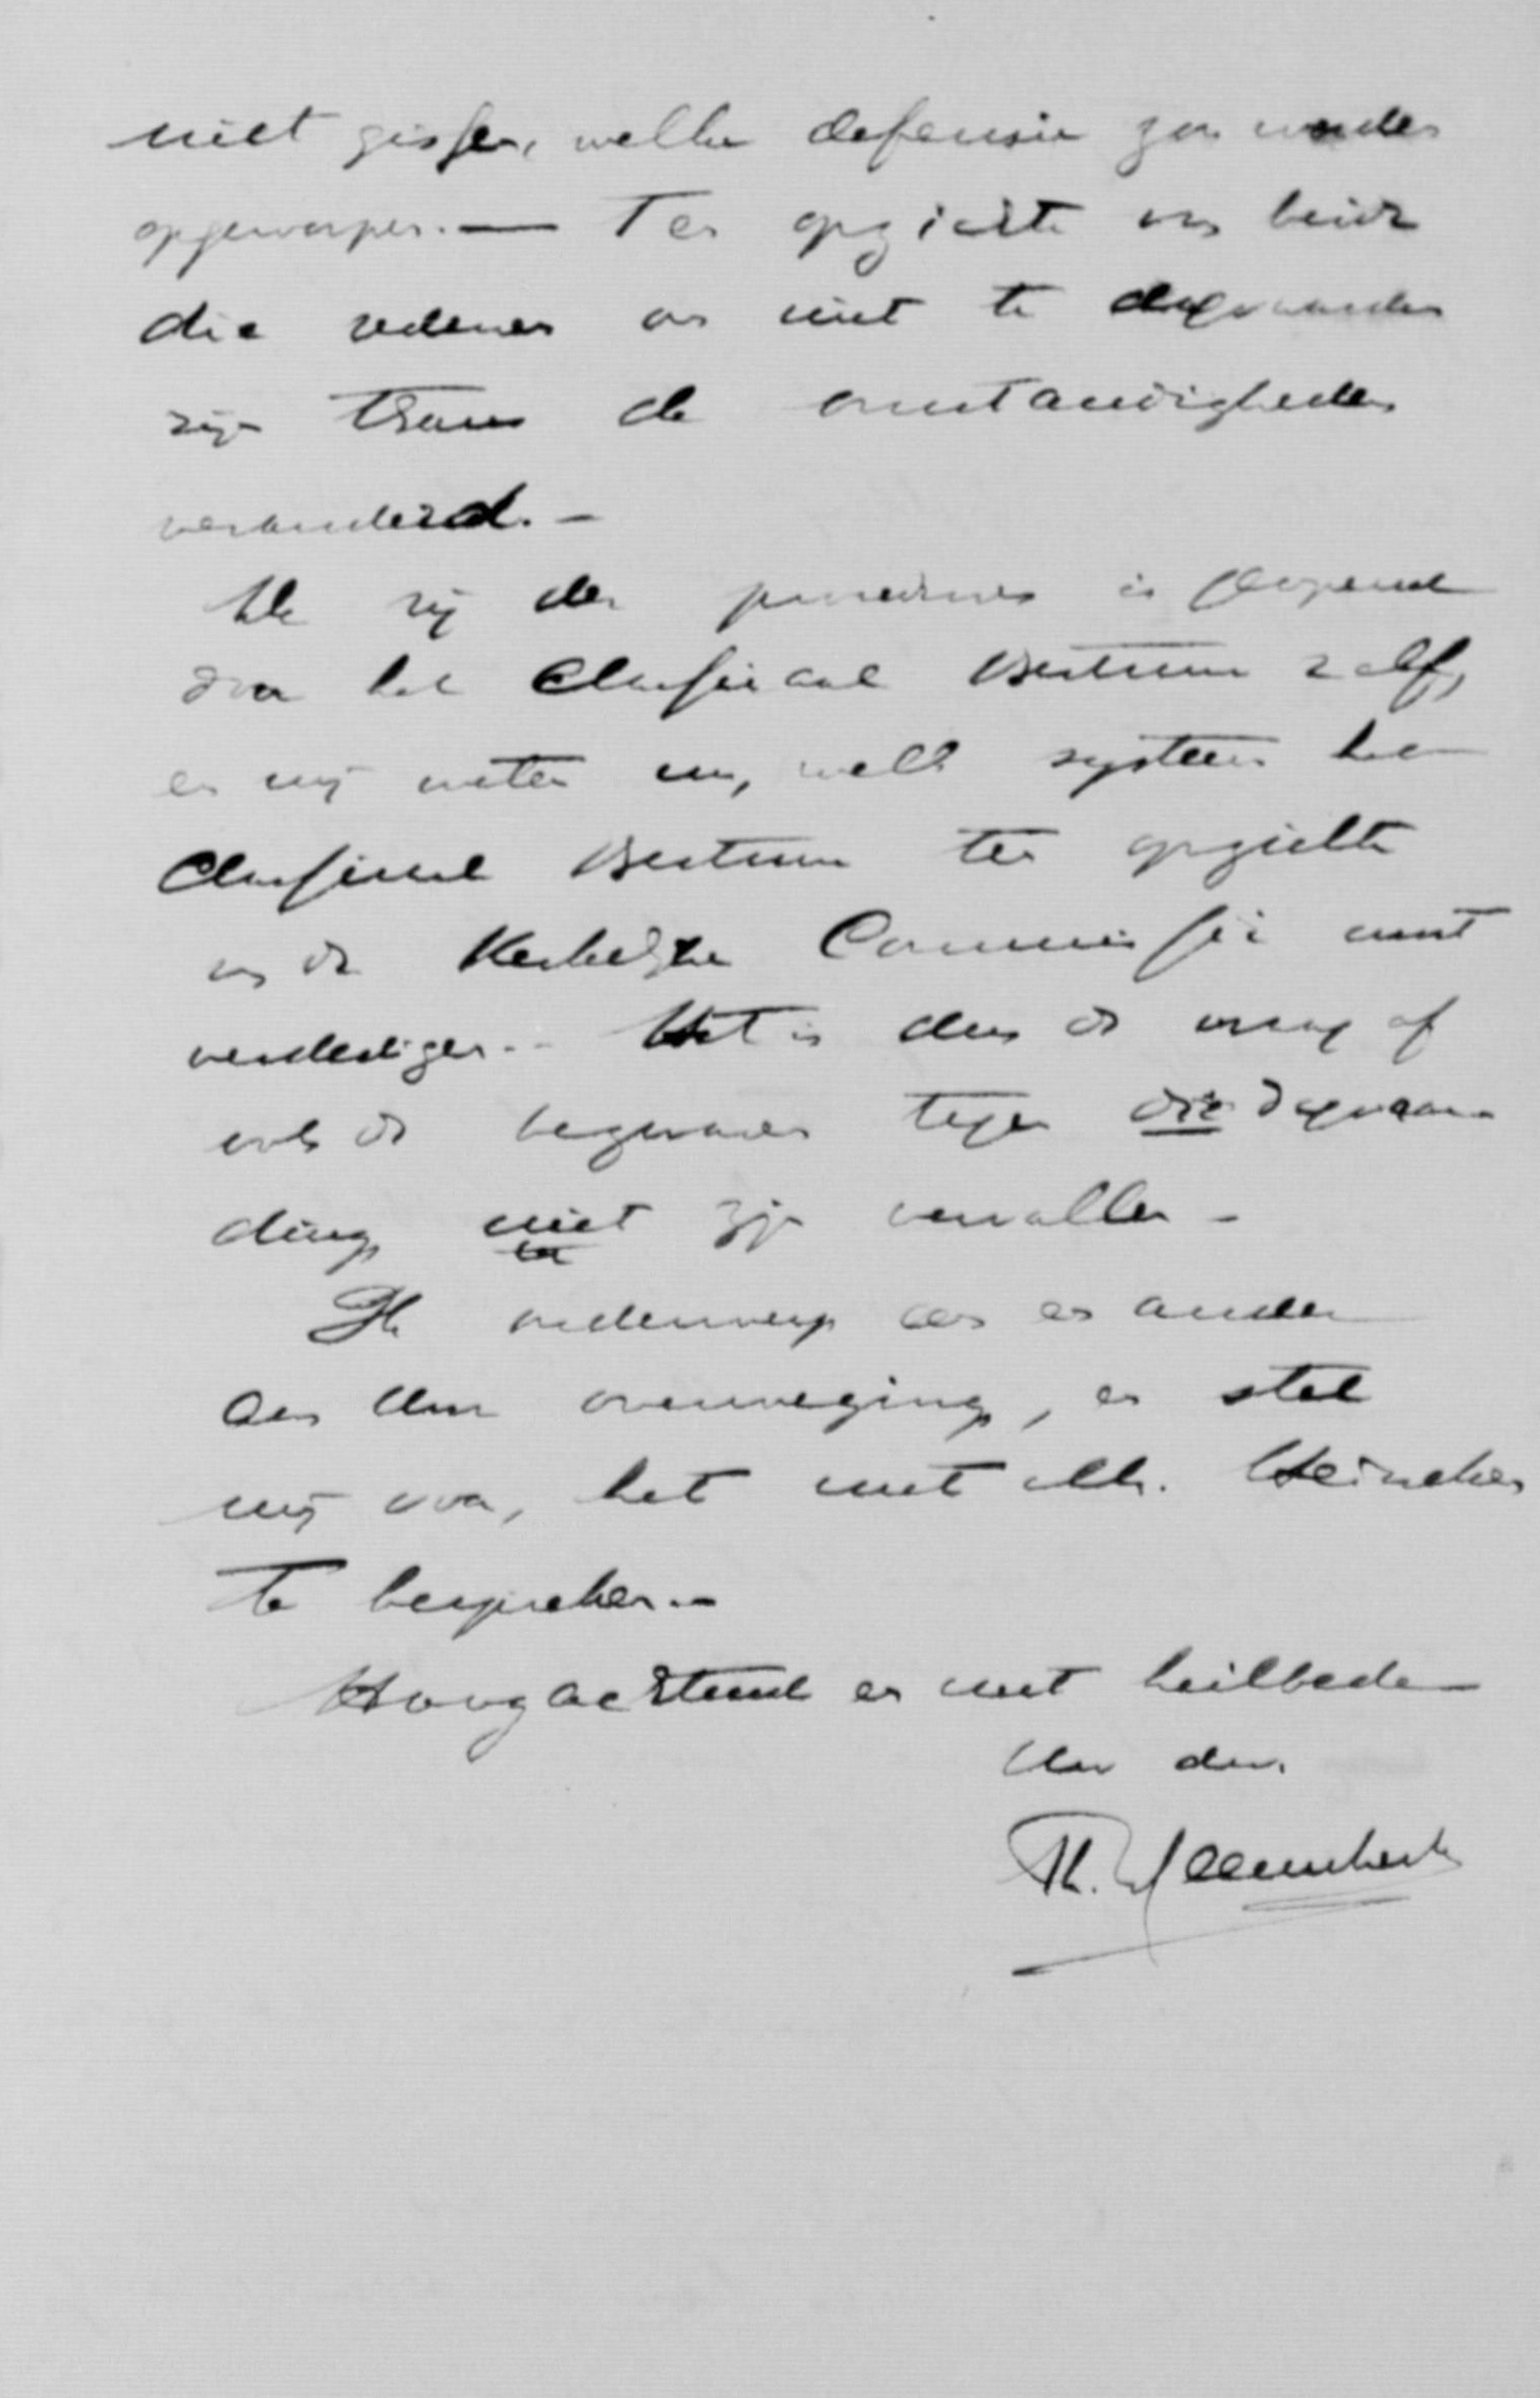 niet gissen, welke defensie zou worden
opgeworpen. — Ten opzichte van beide
die redenen om niet te dagvaarden
zijn thans de omstandigheden
veranderd. —
de is geopend
door het Classicaal Bestuur zelf,
en wij weten nu, welk systeem het
Classicaal Bestuur ten opzichte
van de Kerkelijke Commissie moet
verdedigen. - Het is dus de vraag of
ook de bezwaren tegen die dagvaar-
ding niet zijn vervallen -
Ik onderwerp een en ander
aan Uw overweging, en stel
mij voor, het met Mr. Heineken
te bespreken. -
Hoogachtend en met heilbede
Uw dw.
Th. Heemskerk